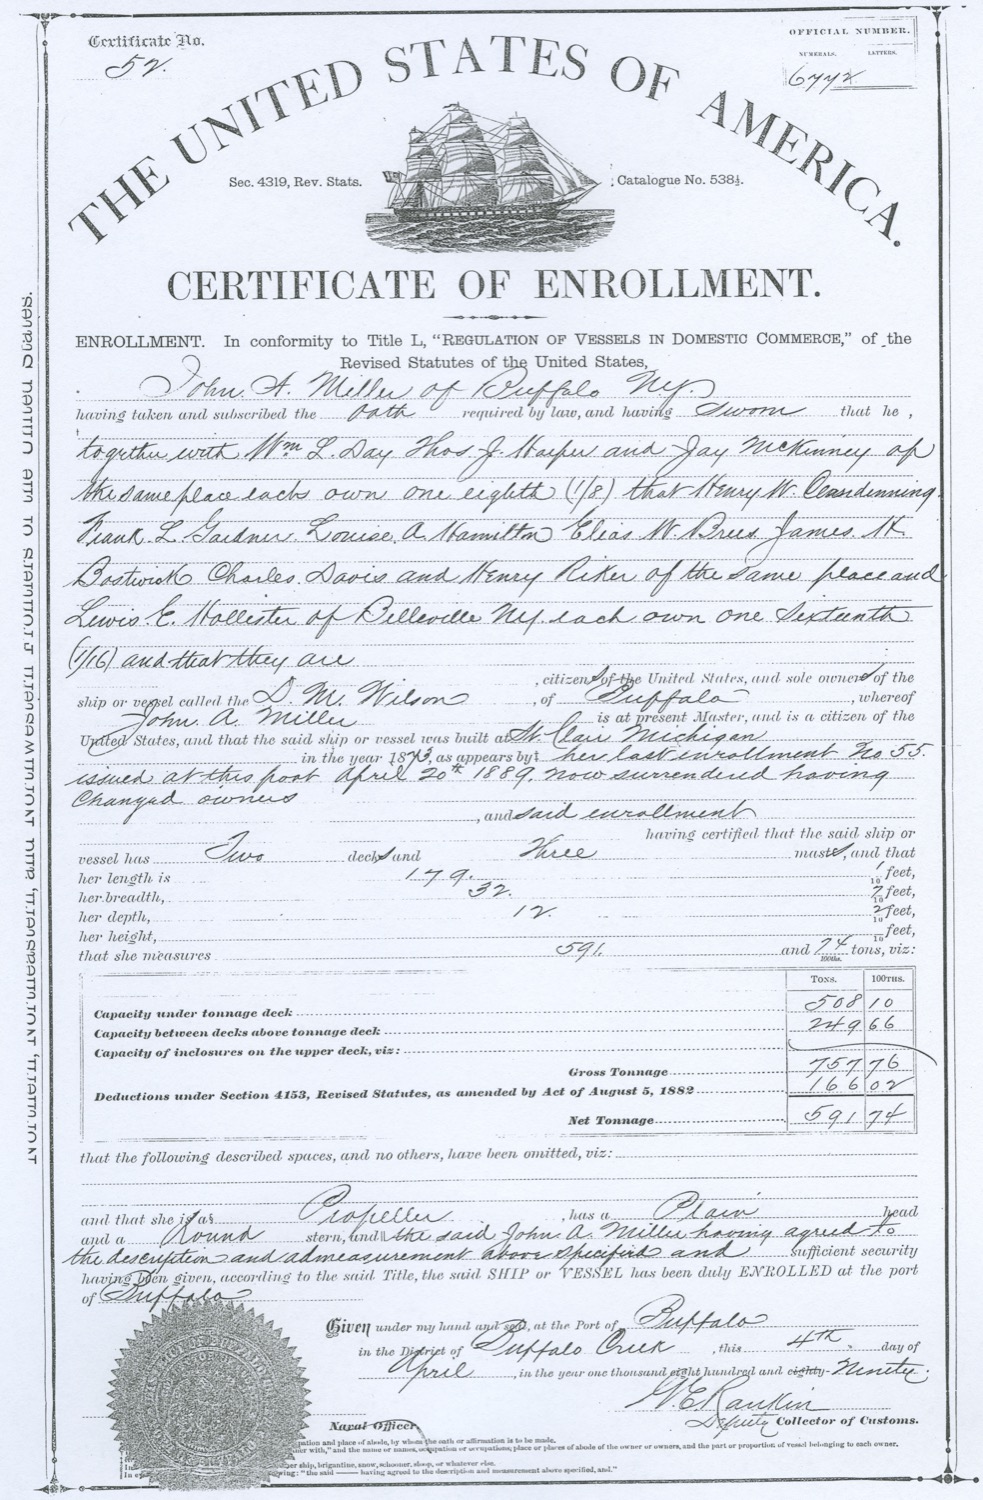 Certificate No.
52.
OFFICIAL NUMBER.
NUMERALS. LETTERS.
6772
THE UNITED STATES OF AMERICA.
Sec. 4319, Rev. Stats.
Catalogue No. 538½.
CERTIFICATE OF ENROLLMENT.
ENROLLMENT. In conformity to Title L, "REGULATION OF VESSELS IN DOMESTIC COMMERCE," of the
Revised Statutes of the United States,
John A. Miller of Buffalo Ny.
having taken and subscribed the oath required by law, and having Sworn that he,
together with Wm L. Day Thos. J. Harper and Jay McKinney of
the same place each own one eighth (1/8) that Henry W. Clendenning
Frank L. Gardner Louise A. Hamilton Elias W. Brees James H
Bostwick Charles Davis and Henry Riker of the same place and
Lewis E. Hollister of Belleville Ny. each own one Sixteenth
(1/16) and that they are
citizens of the United States, and sole owners of the
ship or vessel called the D. M. Wilson, of Buffalo, whereof
John A. Miller is at present Master, and is a citizen of the
United States, and that the said ship or vessel was built at St. Clair Michigan
in the year 1873, as appears by her last enrollment No 55.
issued at this port April 20th 1889, now surrendered having
Changed owners
, and said enrollment
having certified that the said ship or
vessel has Two decks and Three masts, and that
her length is 179. 1/10 feet,
her breadth, 32. 7/10 feet,
her depth, 12. 2/10 feet,
her height, /10 feet,
that she measures 591. and 74/100ths. tons, viz:
TONS. 100THS.
Capacity under tonnage deck 508 10
Capacity between decks above tonnage deck 249 66
Capacity of inclosures on the upper deck, viz:
Gross Tonnage 757 76
Deductions under Section 4153, Revised Statutes, as amended by Act of August 5, 1882 166 02
Net Tonnage 591 74
that the following described spaces, and no others, have been omitted, viz:
and that she is a Propeller, has a Plain head
and a Round stern, and the said John A. Miller having agreed to
the description and admeasurement above specified and sufficient security
having been given, according to the said Title, the said SHIP or VESSEL has been duly ENROLLED at the port
of Buffalo
Given under my hand and seal, at the Port of Buffalo
in the District of Buffalo Creek, this 4th day of
April, in the year one thousand eight hundred and eighty Ninety.
W. E. Rankin
Deputy Collector of Customs.
Naval Officer.
pation and place of abode, by whom the oath or affirmation is to be made.
her with," and the name or names, occupation or occupations; place or places of abode of the owner or owners, and the part or proportion of vessel belonging to each owner.
er ship, brigantine, snow, schooner, sloop, or whatever else.
ing: "the said —— having agreed to the description and measurement above specified, and."